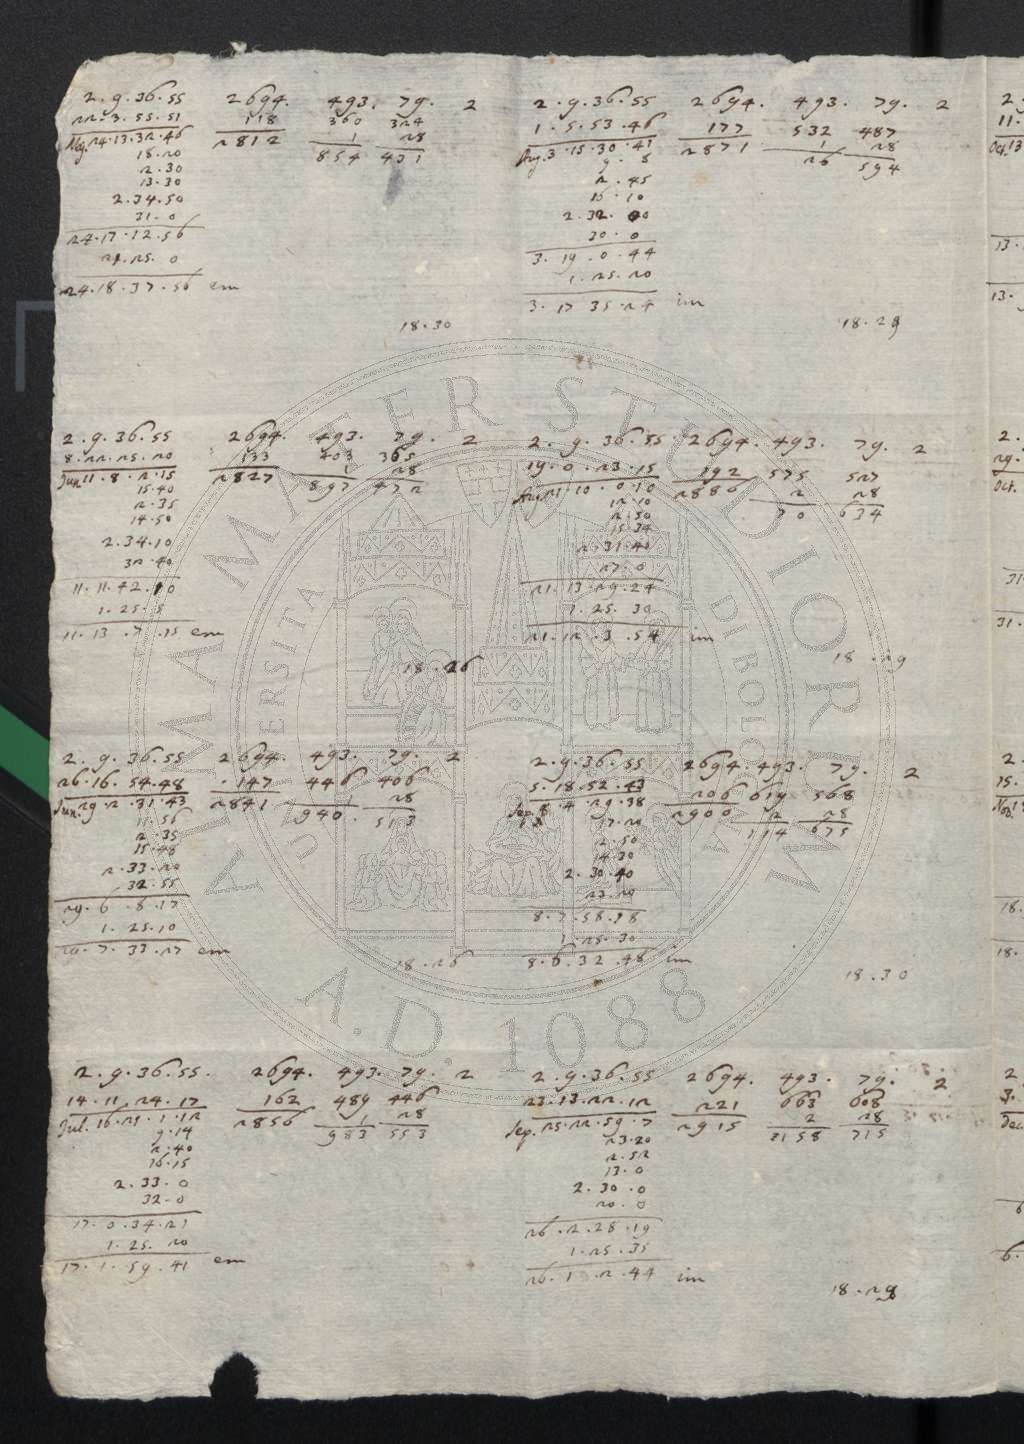 2. 9. 36. 55 2694. 493. 79. 2
22. 3. 55. 51 118 360 324
24. 13. 32. 46 2812 1 28
18. 20 854 431
2. 30
13. 30
2. 34. 50
31. 0
24. 17. 12. 56
25. 0
24. 18. 37. 56 em
18. 30
2. 9. 36. 55 2694. 493. 79. 2
8. 22. 25. 20 133 403 365
Jun. 11. 8. 2. 15 2827 1 28
15. 40 897 472
2. 35
14. 50
2. 34. 10
32. 40
11. 11. 42. 10
1. 25. 5
11. 13. 7. 15 em
18. 26
2. 9. 36. 55 2694. 493. 79. 2
26. 16. 54. 48 147 446 406
Jun. 29. 2. 31. 43 2841 1 28
11. 56 940. 513
2. 35
15. 48
2. 33. 20
32. 55
29. 6. 8. 17
1. 25. 10
29. 7. 33. 27 em
18. 26
2. 9. 36. 55. 2694. 493. 79. 2
14. 11. 24. 17 162 489 446
Jul. 16. 21. 1. 12 2856 1 28
9. 14 983 553
2. 40
16. 15
2. 33. 0
32. 0
17. 0. 34. 21
1. 25. 20
17. 1. 59. 41 em
2. 9. 36. 55 2694. 493. 79. 2
1. 5. 53. 46 177 532 487
Aug. 3. 15. 30. 41 2871 1 28
9. 8 26 594
2. 45
16. 10
2. 32. 00
30. 0
3. 19. 0. 44
1. 25. 20
3. 17 35. 24 im
18. 29
2. 9. 36. 55 2694. 493. 79. 2
19. 0. 23. 15 192 575 527
Aug. 21. 10. 0. 10 2886 2 28
12. 10 70 634
2. 50
15. 34
2. 31. 40
27. 0
21. 13. 29. 24
1. 25. 30
21. 12. 3. 54 im
18. 29
2. 9. 36. 55 2694. 493. 79. 2
5. 18. 52. 43 206 619 568
Sep. 8. 4. 29. 38 2900 2 28
17. 20 114 675
2. 50
14. 30
2. 30. 40
23. 20
8. 7. 58. 18
1. 25. 30
8. 6. 32. 48 im
18. 30
2. 9. 36. 55 2694. 493. 79. 2
23. 13. 22. 12 221 663 608
Sep. 25. 22. 59. 7 2915 2 28
23. 20 2158 715
2. 52
13. 0
2. 30. 0
20. 0
26. 2. 28. 19
1. 25. 35
26. 1. 2. 44 im
18. 29
2.
11.
Oct. 13
13.
13.
2.
29.
Oct.
31.
31.
2.
15.
Nov.
18.
18.
2.
3.
Dec.
6
6.
ALMA MATER STUDIORUM
A.D. 1088